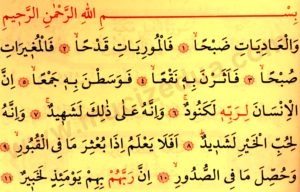 بِسْمِ اللهِ الرَّحْمٰنِ الرَّحِيمِ
وَالْعَادِيَاتِ ضَبْحًا ﴿١﴾ فَالْمُورِيَاتِ قَدْحًا ﴿٢﴾ فَالْمُغِيرَاتِ
صُبْحًا ﴿٣﴾ فَاَثَرْنَ بِهِ نَقْعًا ﴿٤﴾ فَوَسَطْنَ بِهِ جَمْعًا ﴿٥﴾ اِنَّ
الْاِنْسَانَ لِرَبِّهِ لَكَنُودٌ ﴿٦﴾ وَاِنَّهُ عَلٰى ذٰلِكَ لَشَهِيدٌ ﴿٧﴾ وَاِنَّهُ
لِحُبِّ الْخَيْرِ لَشَدِيدٌ ﴿٨﴾ اَفَلَا يَعْلَمُ اِذَا بُعْثِرَ مَا فِي الْقُبُورِ ﴿٩﴾
وَحُصِّلَ مَا فِي الصُّدُورِ ﴿١٠﴾ اِنَّ رَبَّهُمْ بِهِمْ يَوْمَئِذٍ لَخَبِيرٌ ﴿١١﴾